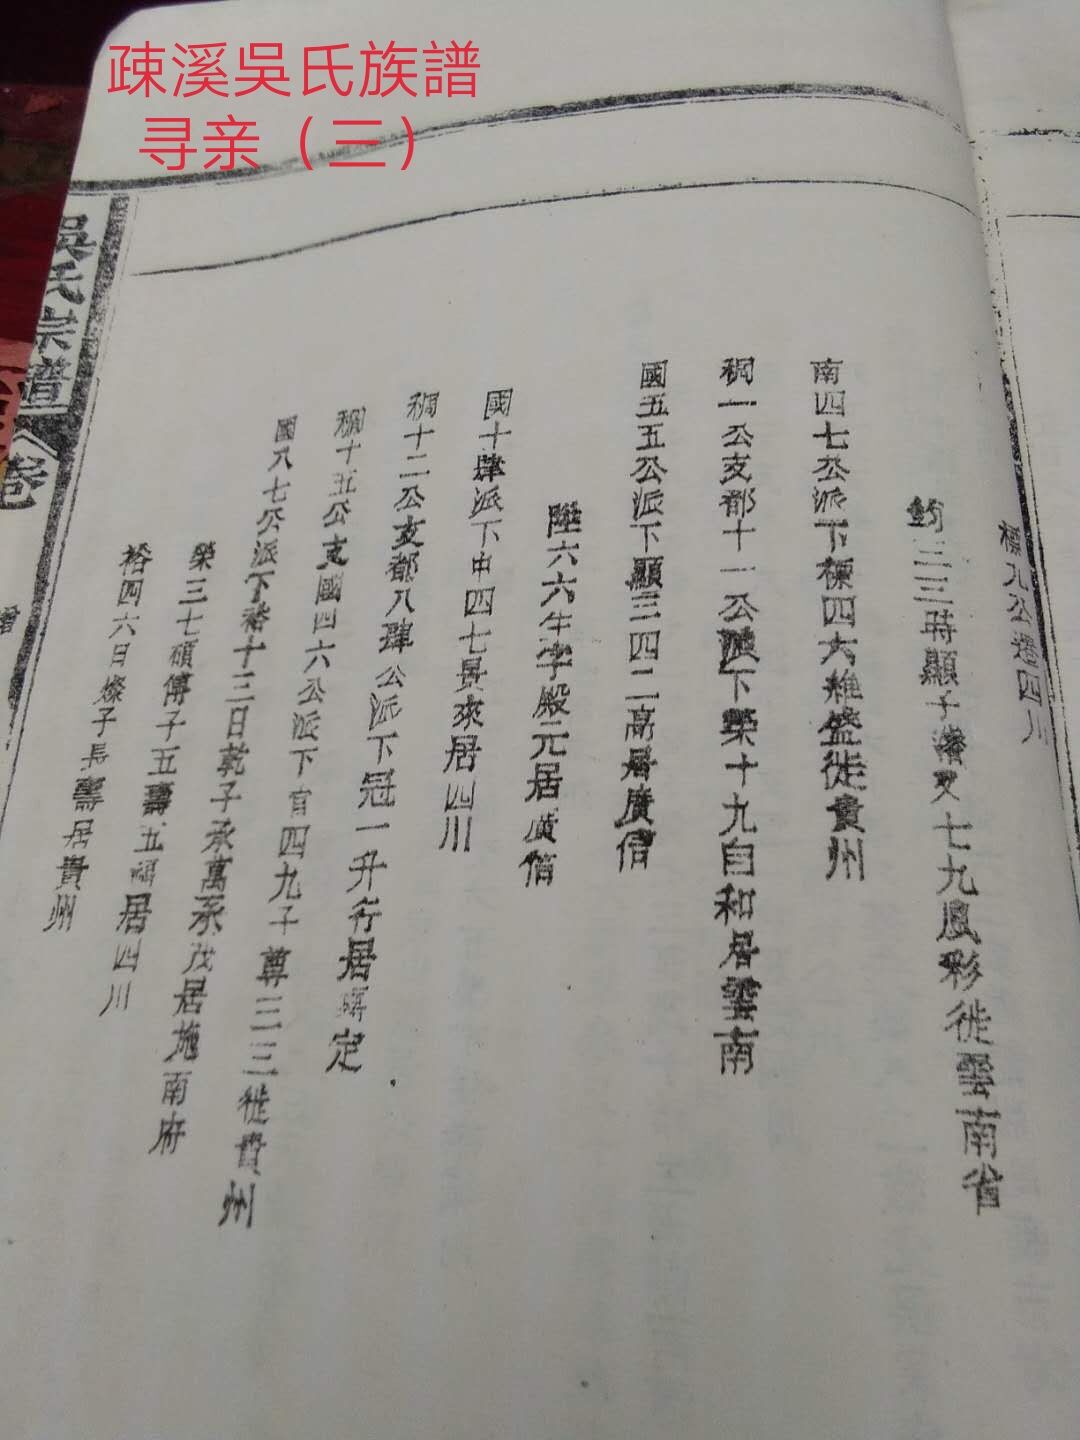 疎溪吳氏族譜
寻亲（三）
標九公遷四川
鈞三三時顯子潘又七九鳳彩徙雲南省
南四七公派下標四六維盛徙貴州
稠一公支都十一公派下榮十九白和居雲南
國五五公派下顯三四二高居廣信
陞六六牛字殿元居廣信
國十肆派下申四七景來居四川
稠十二公支都八肆公派下冠一升行居定
稠十五公支國四六公派下官四九子尊三三徙貴州
國八七公派下裕十三日乾子承萬承茂居施南府
榮三七碩傅子五壽五福居四川
裕四六日燦子長壽居貴州
吳氏宗譜
卷
譜